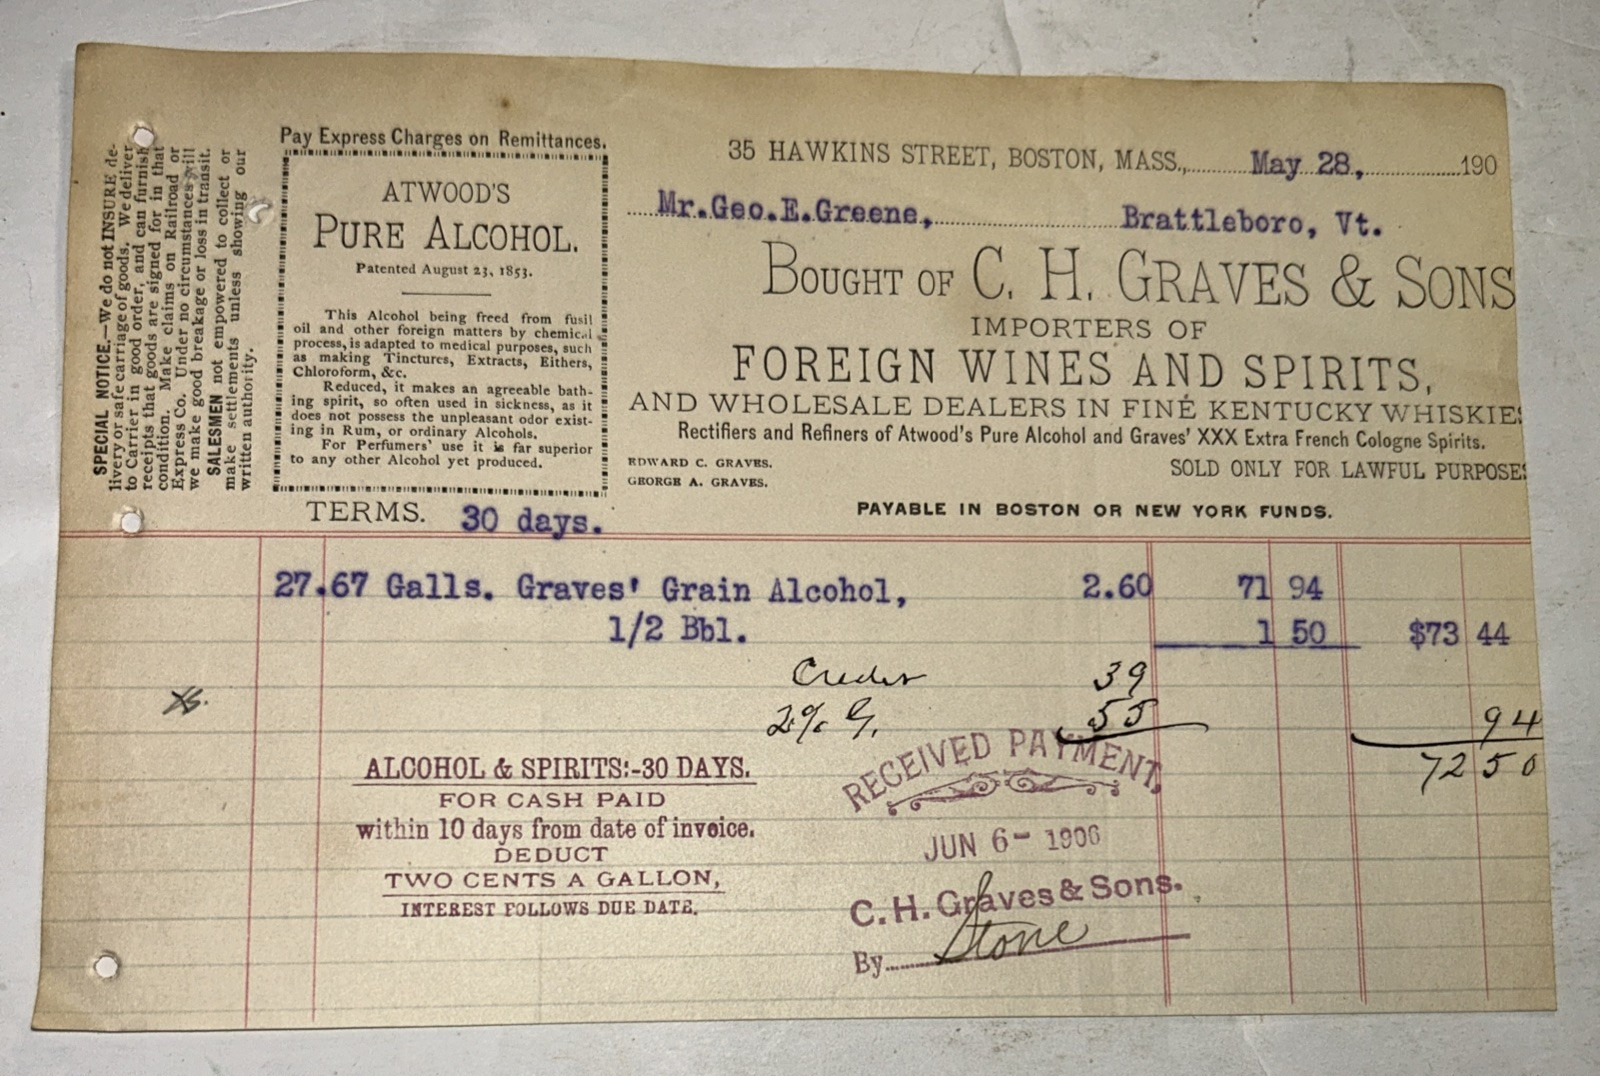 SPECIAL NOTICE.—We do not INSURE de-
livery or safe carriage of goods. We deliver
to Carrier in good order, and can furnish
receipts that goods are signed for in that
condition. Make claims on Railroad or
Express Co. Under no circumstances will
we make good breakage or loss in transit.
SALESMEN not empowered to collect or
make settlements unless showing our
written authority.
Pay Express Charges on Remittances.
ATWOOD'S
PURE ALCOHOL.
Patented August 23, 1853.
This Alcohol being freed from fusil
oil and other foreign matters by chemical
process, is adapted to medical purposes, such
as making Tinctures, Extracts, Eithers,
Chloroform, &c.
Reduced, it makes an agreeable bath-
ing spirit, so often used in sickness, as it
does not possess the unpleasant odor exist-
ing in Rum, or ordinary Alcohols.
For Perfumers' use it is far superior
to any other Alcohol yet produced.
35 HAWKINS STREET, BOSTON, MASS., May 28, 190
Mr. Geo. E. Greene, Brattleboro, Vt.
BOUGHT OF C. H. GRAVES & SONS
IMPORTERS OF
FOREIGN WINES AND SPIRITS,
AND WHOLESALE DEALERS IN FINE KENTUCKY WHISKIES
Rectifiers and Refiners of Atwood's Pure Alcohol and Graves' XXX Extra French Cologne Spirits.
EDWARD C. GRAVES.
GEORGE A. GRAVES.
SOLD ONLY FOR LAWFUL PURPOSES
TERMS. 30 days.
PAYABLE IN BOSTON OR NEW YORK FUNDS.
27.67 Galls. Graves' Grain Alcohol, 2.60 71 94
1/2 Bbl. 1 50 $73 44
Credit 39
2% G. 55 94
72 50
ALCOHOL & SPIRITS:-30 DAYS.
FOR CASH PAID
within 10 days from date of invoice.
DEDUCT
TWO CENTS A GALLON,
INTEREST FOLLOWS DUE DATE.
RECEIVED PAYMENT,
JUN 6- 1906
C. H. Graves & Sons.
By Stone